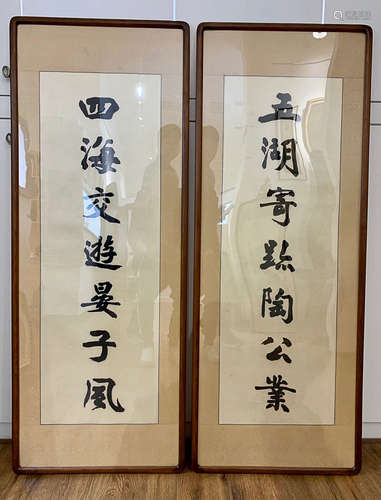 五湖寄跡陶公業
四海交遊晏子風